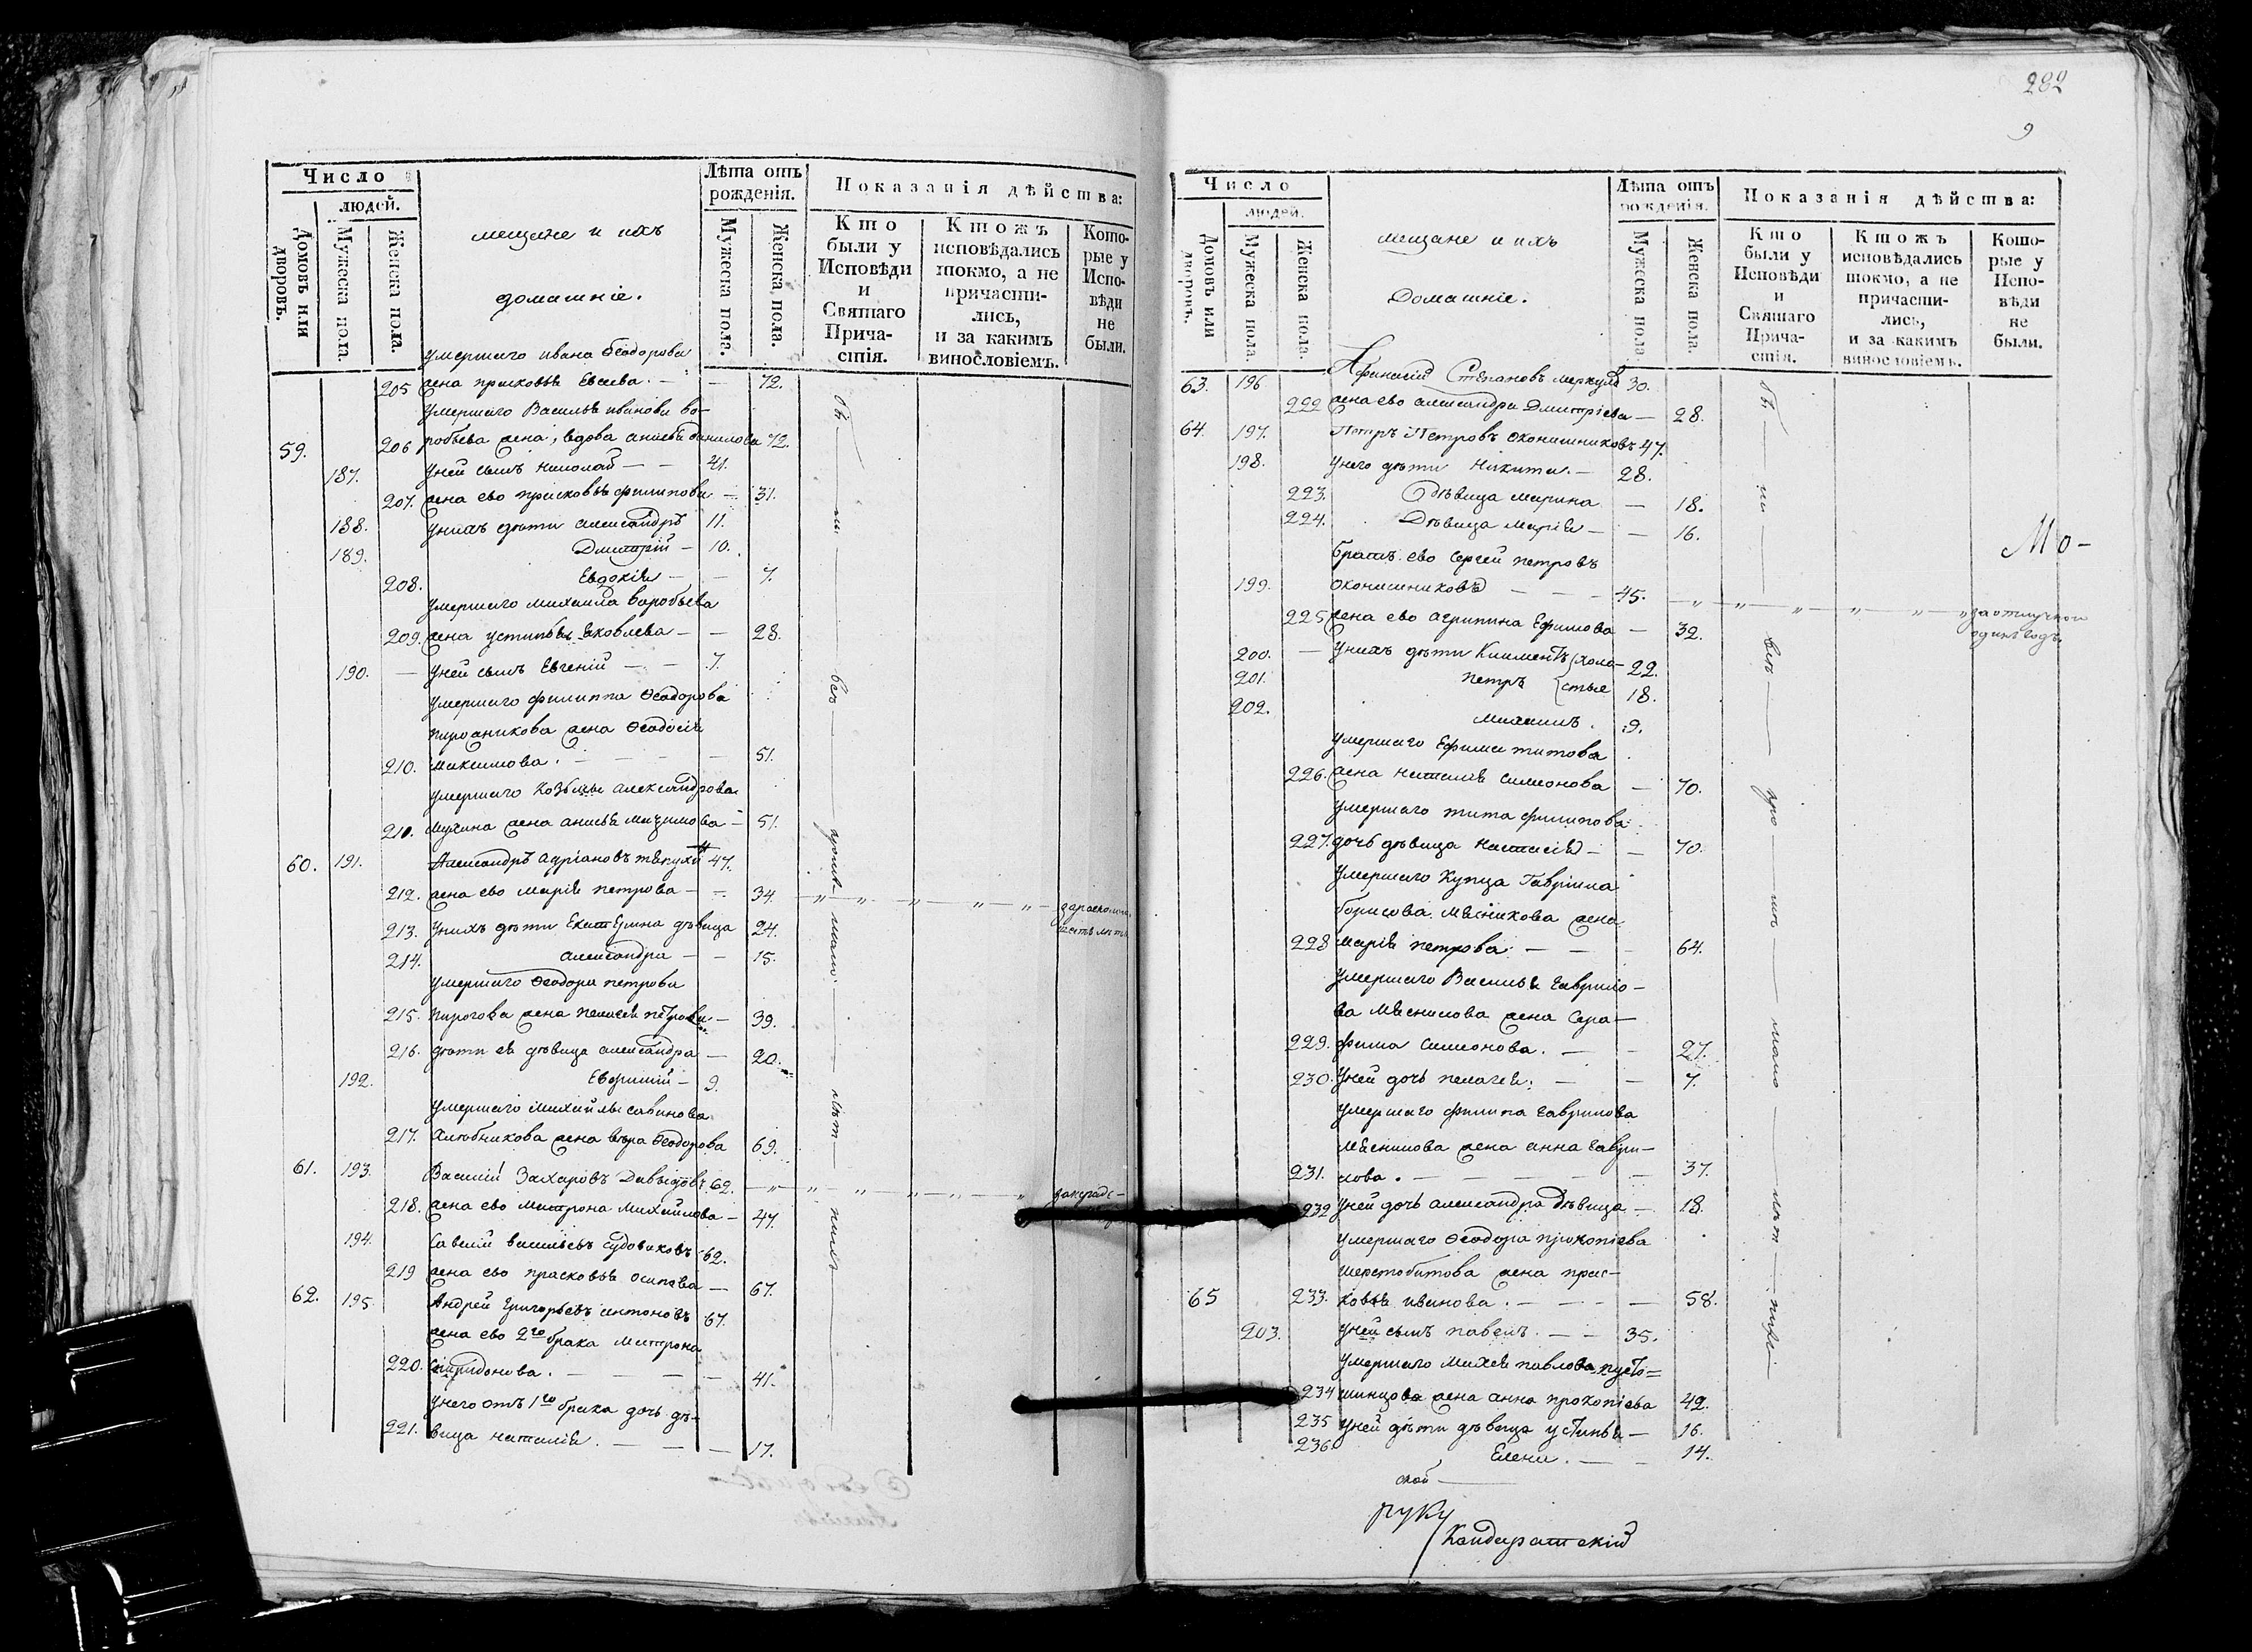 Число
людей.
Домовъ или дворовъ.
Мужеска пола.
Женска пола.
мещане и ихъ
домашніе.
Лѣта отъ рожденія.
Мужеска пола.
Женска пола.
Показанія дѣйства:
Кто были у Исповѣди и Святаго Прича-стія.
Ктожъ исповѣдались токмо, а не причасти-лись, и за какимъ винословіемъ.
Кото-рые у Испо-вѣди не были.
умершаго ивана Ѳеодорова
205 жена прасковья Евсева. — — 72.
умершаго Василья иванова во-
59. 206 робьева жена, вдова анисья данилова 72.
187. уней сынъ николай — — 41.
207. жена ево прасковья филипова — 31.
188. унихъ дѣти александръ 11.
189. Дмитрій — 10.
208. Евдокія — — 7.
умершаго михаила воробьева
209. жена устинья Яковлева — — 28.
190. — уней сынъ Евгеній — — 7.
умершаго филиппа Ѳеодорова
жена Ѳеодосія
210. максимова. — — — — 51.
умершаго козьмы александрова
210. мухина жена анисья — 51.
60. 191. Александръ адріановъ 47.
212. жена ево марія петрова — — 34.
213. унихъ дѣти Екатерина дѣвица 24.
214. александра — — 15.
умершаго Ѳеодора петрова
215. пирогова жена пелагея петрова — 39.
216. дѣти ея дѣвица александра — 20.
192. Евфимій — 9.
умершаго михайлы савинова
217. жена вѣра Ѳеодорова 69.
61. 193. Василій Захаровъ Давыдовъ 62.
218. жена ево матрона михайлова — 47.
194. Савелій васильевъ судоваковъ 62.
219 жена ево прасковья осипова — 67.
62. 195. Андрей григорьевъ антоновъ 67.
жена ево 2го брака матрона
220. спиридонова. — — — — 41.
унего отъ 1го брака дочь дѣ-
221. вица наталія. — — — 17.
282
9
Число
людей.
Домовъ или дворовъ.
Мужеска пола.
Женска пола.
мещане и ихъ
Домашніе.
Лѣта отъ рожденія.
Мужеска пола.
Женска пола.
Показанія дѣйства:
Кто были у Исповѣди и Святаго Прича-стія.
Ктожъ исповѣдались токмо, а не причасти-лись, и за какимъ винословіемъ.
Кото-рые у Испо-вѣди не были.
63. 196 Афанасій Степановъ 30.
222 жена ево александра Дмитріева — 28.
64. 197. Петръ Петровъ оконишниковъ 47.
198. унего дѣти Никита. — 28.
223. Дѣвица марина — 18.
224. Дѣвица марія — — 16.
Мо-
братъ ево сергей петровъ
199. оконишниковъ — — — 45. за отлучкою
одинъ годъ.
225 жена ево агрипина Ефимова — 32.
200. — унихъ дѣти Климентъ холо- 22.
201. петръ стые 18.
202. михаилъ. 9.
умершаго Ефима титова
226. жена наталія симеонова — 70.
умершаго тита филипова
227. дочь дѣвица настасія — — 70.
умершаго Купца Гавріила
борисова мясникова жена
228 марія петрова. — — — 64.
умершаго Василья гаврило-
ва мясникова жена Сера-
229. фима симеонова. — — 27.
230. уней дочь пелагея. — — 7.
умершаго филипа гаврилова
мясникова жена анна гаври-
231. лова. — — — — — 37.
232 уней дочь александра дѣвица — 18.
умершаго Ѳеодора прокопіева
шерстобитова жена прас-
65 233. ковья иванова. — — — — 58.
203. уней сынъ павелъ. — — 35.
умершаго михея павлова пусто=
234 шинцова жена анна прокопіева 42.
235 уней дѣти дѣвица устинья — 16.
236. Елена. — — 14.
ской
руку
Кандаратскій